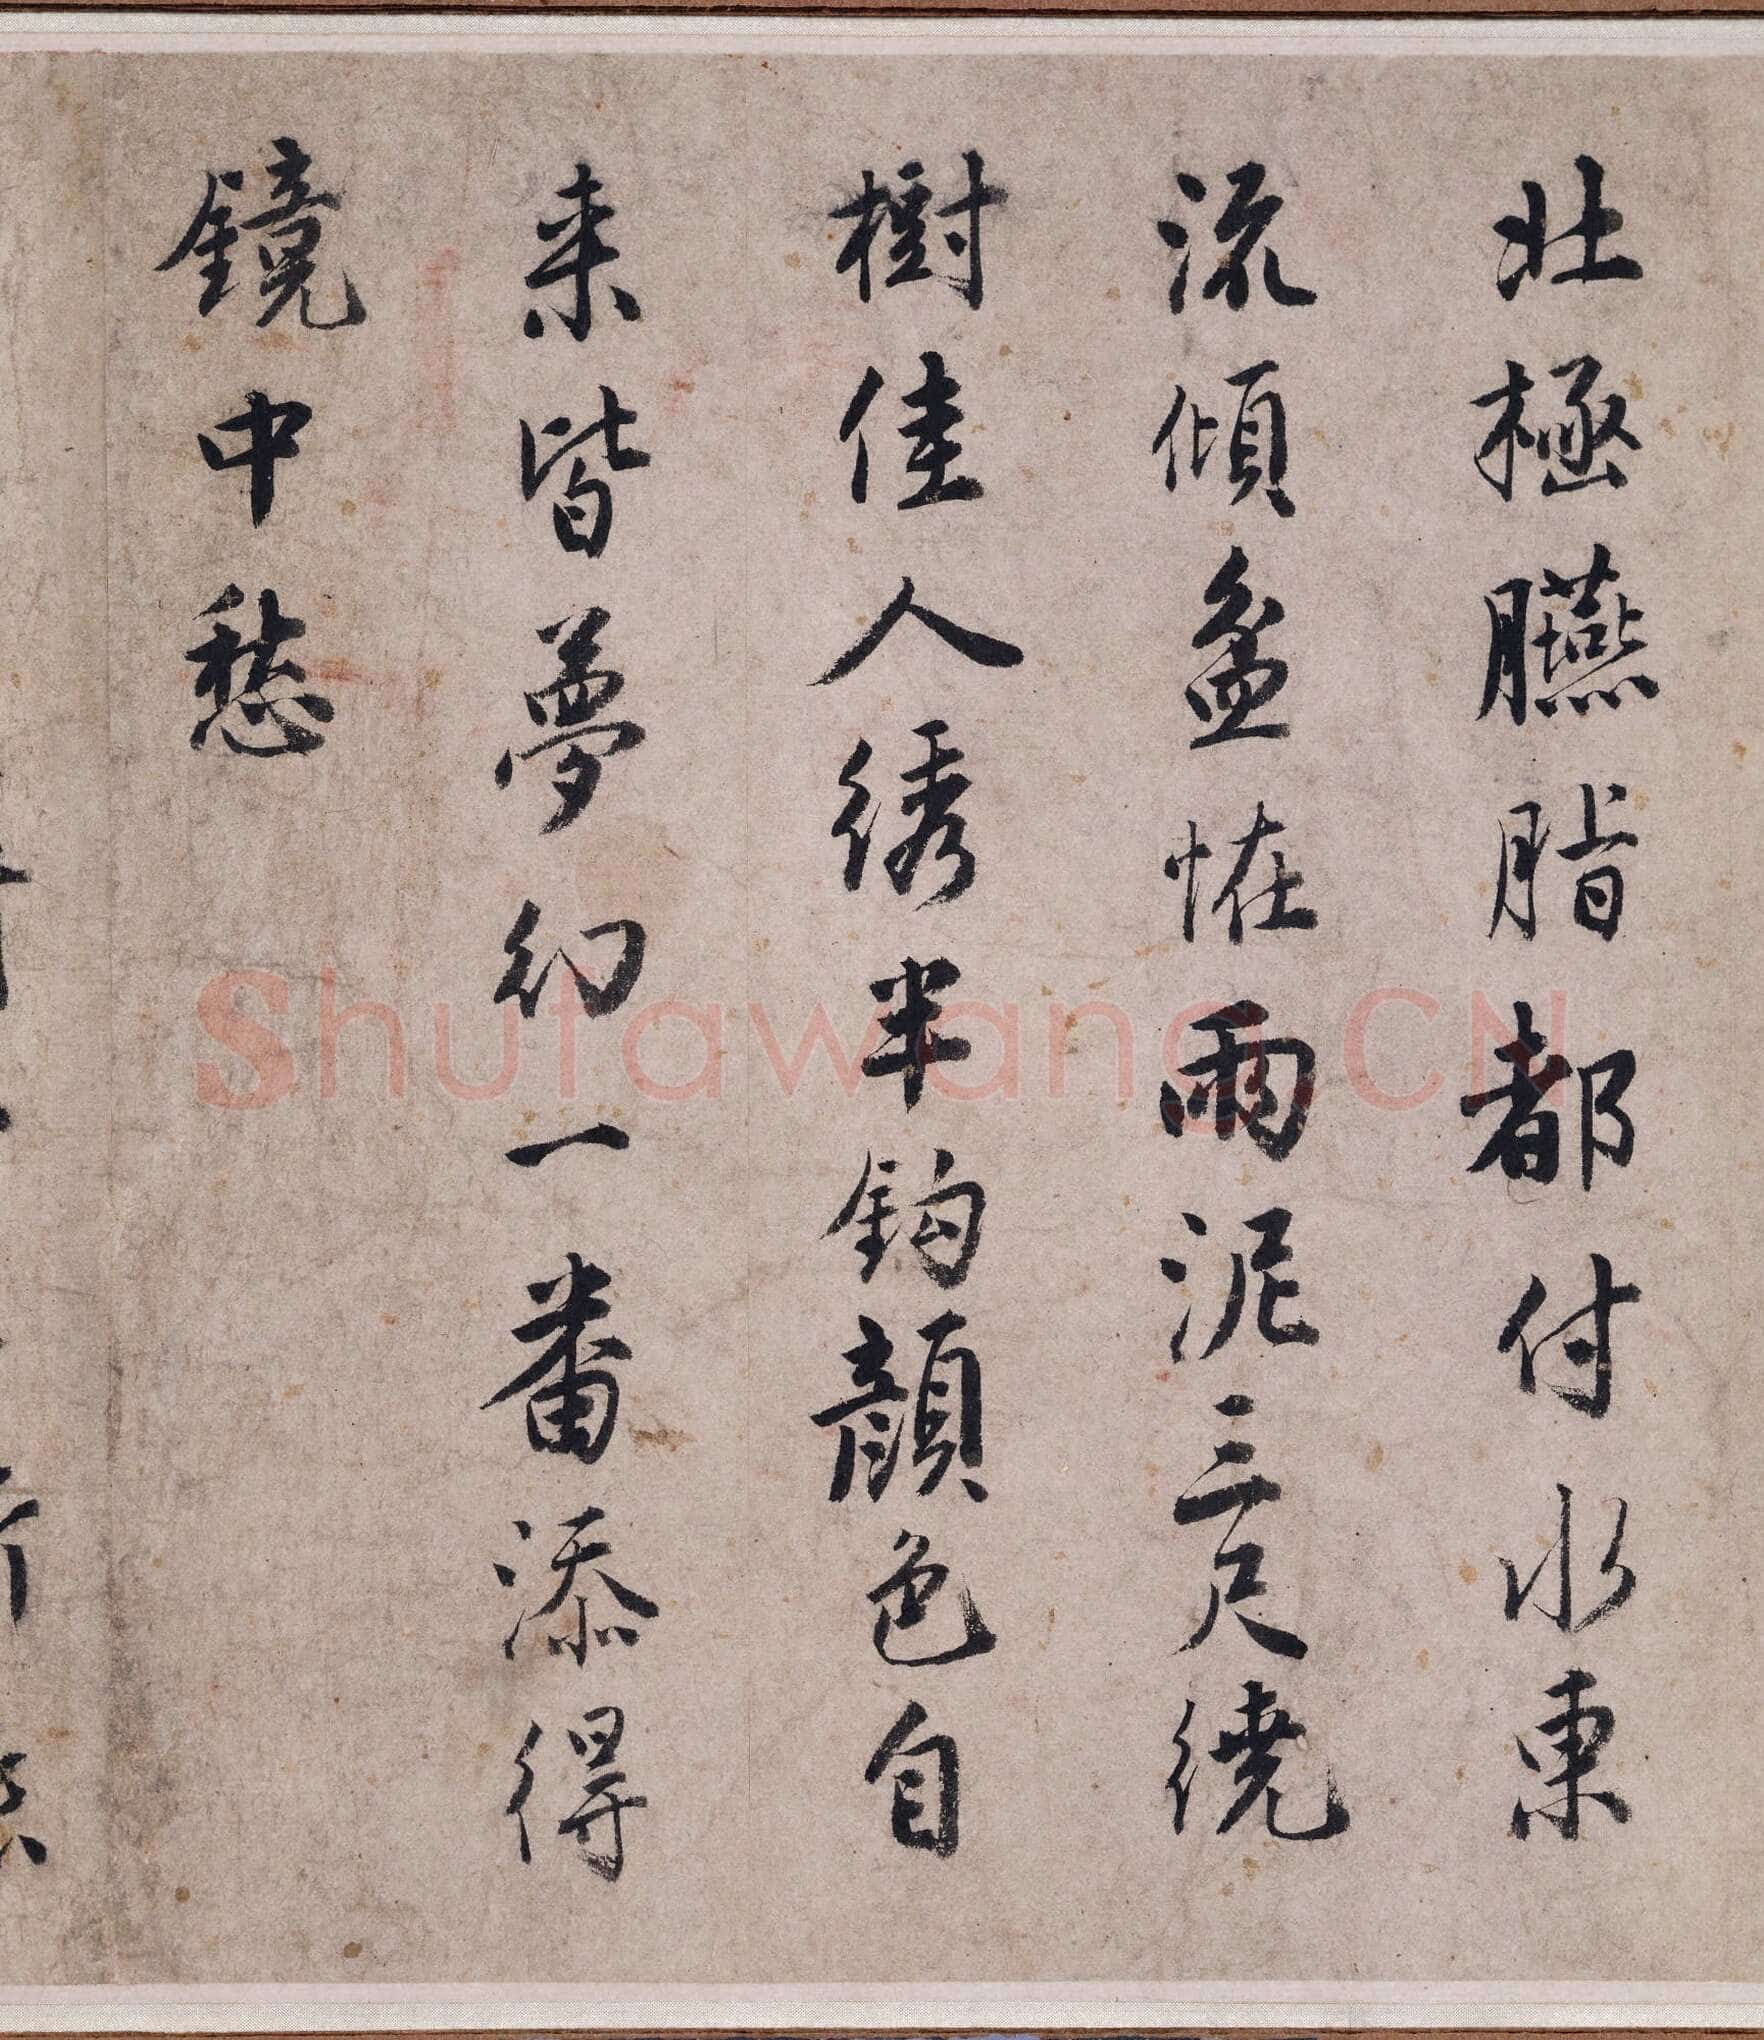 北極臙脂都付水東
流傾盆恠雨泥三尺繞
樹佳人綉半鈎顔色自
来皆夢幻一番添得
鏡中愁
Shufawang.CN